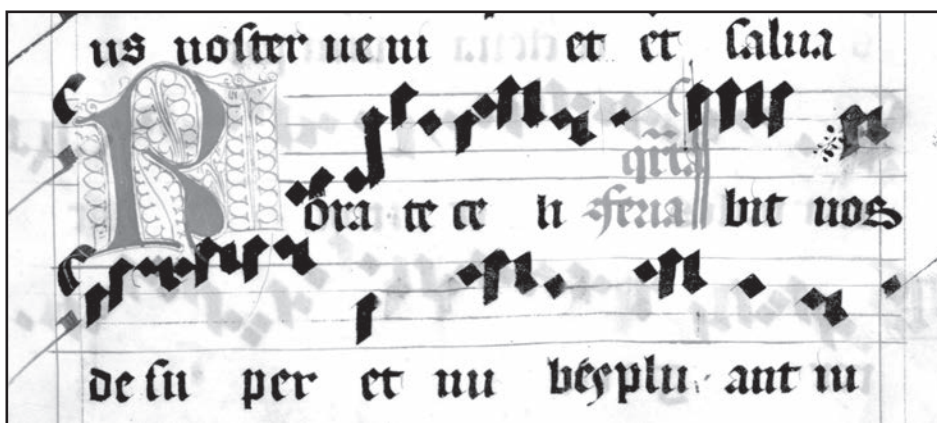 us noſter ueni et et ſalua
qrta
Rōra te ce li feria bit nos
de ſu per et nu plu ant iu